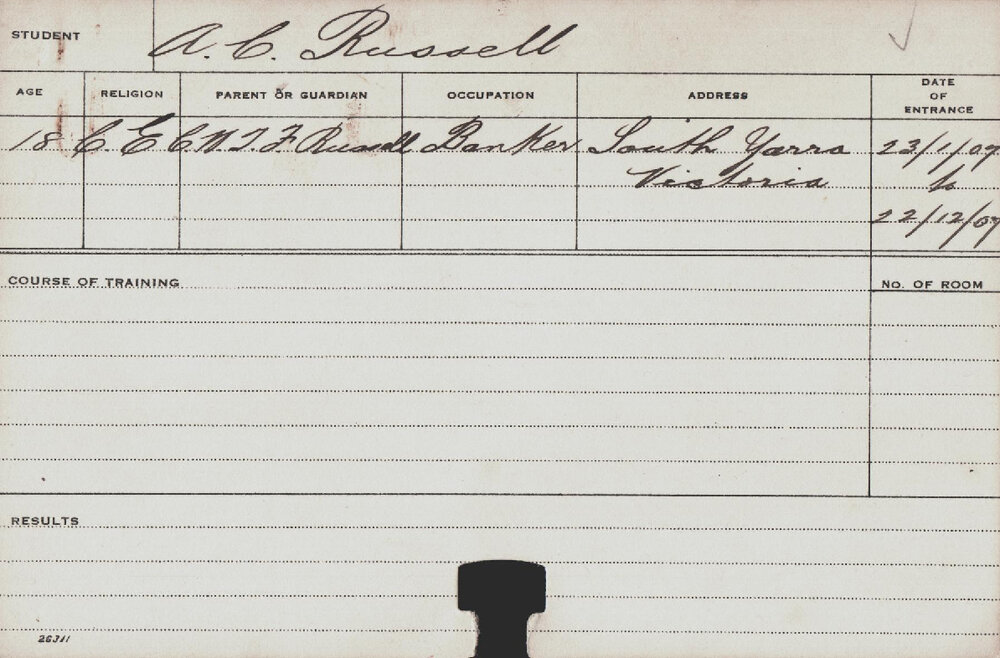 STUDENT A. C. Russell
AGE RELIGION PARENT OR GUARDIAN OCCUPATION ADDRESS DATE OF ENTRANCE
18 C. E C N T. F. Russell Banker South Yarra 23/1/07
Victoria to
22/12/07
COURSE OF TRAINING No. OF ROOM
RESULTS
26311